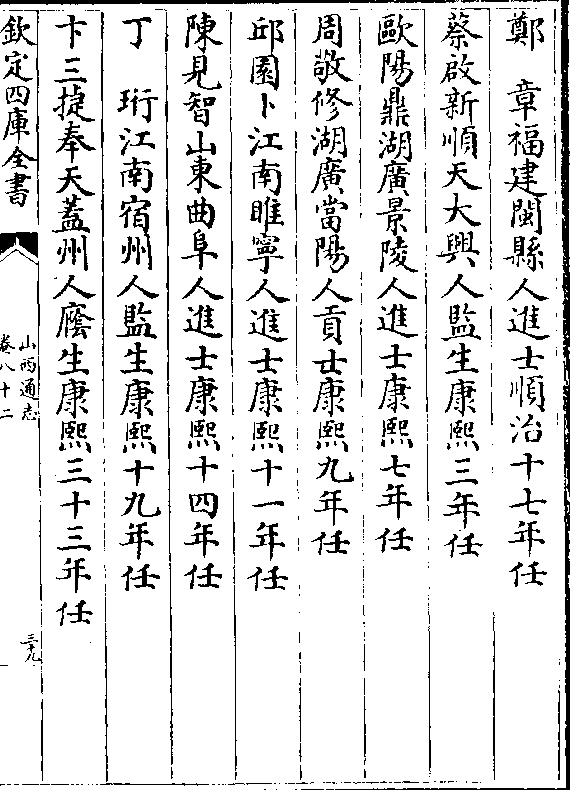 鄭　章福建閩縣人進士順治十七年任
蔡啟新順天大興人監生康熙三年任
歐陽鼎湖廣景陵人進士康熙七年任
周敬修湖廣當陽人貢士康熙九年任
邱園卜江南睢寧人進士康熙十一年任
陳見智山東曲阜人進士康熙十四年任
丁　珩江南宿州人監生康熙十九年任
卞三㨗奉天蓋州人廕生康熙三十三年任
欽定四庫全書
山西通志
卷八十二
三十九